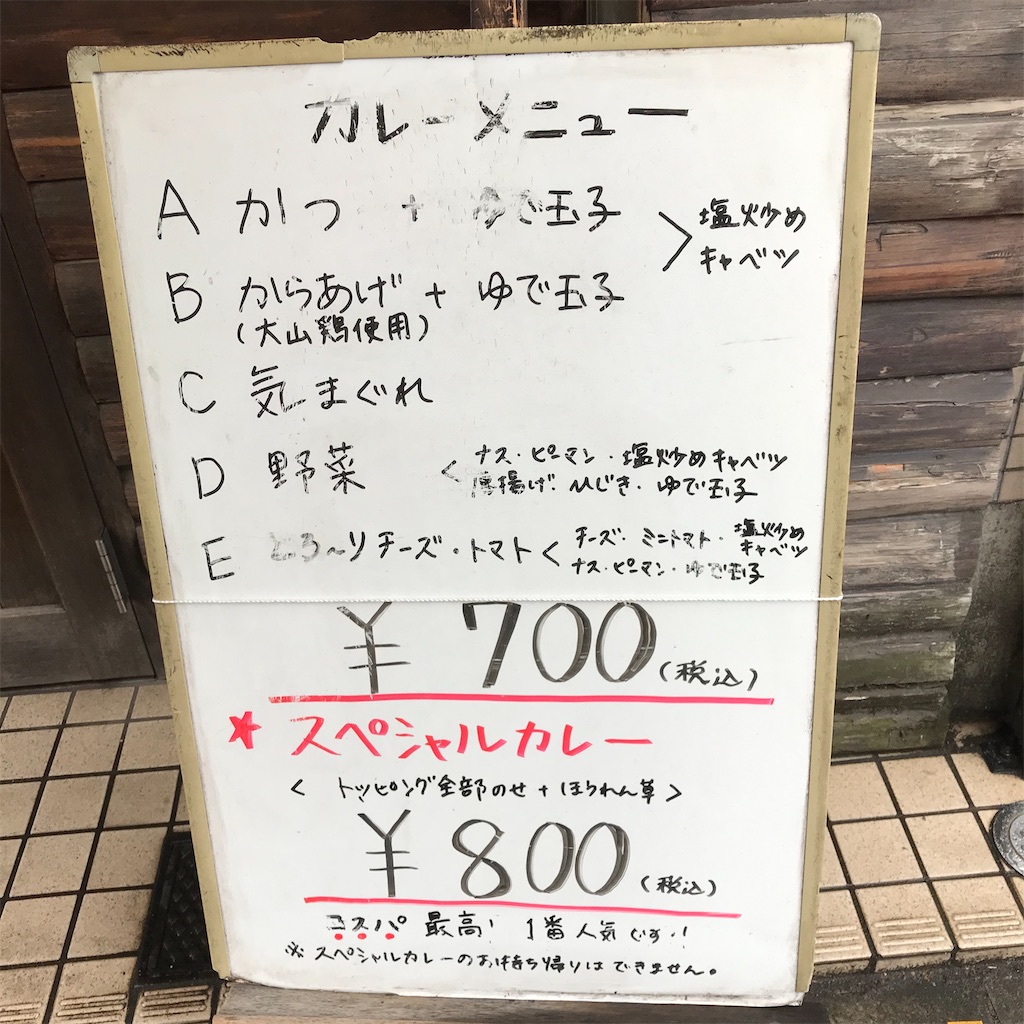 カレーメニュー
A かつ + ゆで玉子
B からあげ + ゆで玉子
(大山鶏使用)
> 塩炒め
キャベツ
C 気まぐれ
D 野菜 < ナス・ピーマン・塩炒めキャベツ
厚揚げ・ひじき・ゆで玉子
E とろ〜りチーズ・トマト < チーズ・ミニトマト・塩炒めキャベツ
ナス・ピーマン・ゆで玉子
¥700(税込)
★スペシャルカレー
<トッピング全部のせ+ほうれん草>
¥800(税込)
コスパ最高! 1番人気です!!
※スペシャルカレーのお持ち帰りはできません。